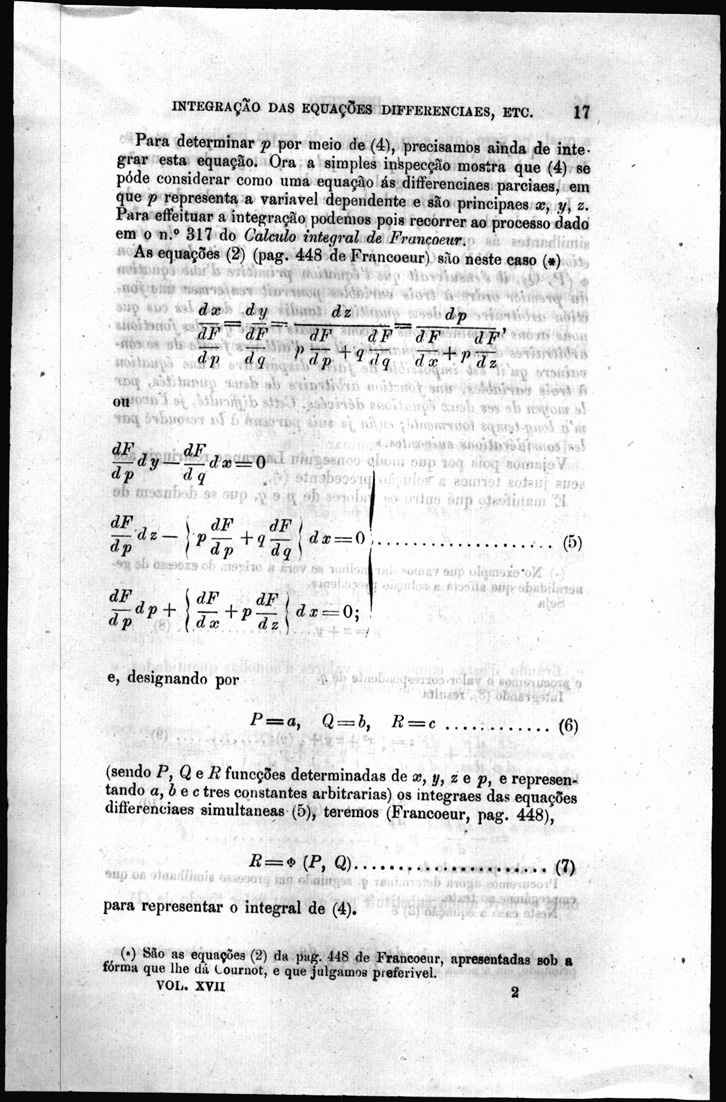 INTEGRAÇÃO DAS EQUAÇÕES DIFFERENCIAES, ETC. 17
Para determinar p por meio de (4), precisamos ainda de inte-
grar esta equação. Ora a simples inspecção mostra que (4) se
póde considerar como uma equação ás differenciaes parciaes, em
que p representa a variavel dependente e são principaes x, y, z.
Para effeituar a integração podemos pois recorrer ao processo dado
em o n.º 317 do Calculo integral de Francoeur.
As equações (2) (pag. 448 de Francoeur) são neste caso (*)
dx/(dF/dp) = dy/(dF/dq) = dz/(p dF/dp + q dF/dq) = dp/(dF/dx + p dF/dz),
ou
dF/dp dy — dF/dq dx = 0
dF/dp dz — { p dF/dp + q dF/dq } dx = 0 ...................... (5)
dF/dp dp + { dF/dx + p dF/dz } dx = 0;
e, designando por
P = a, Q = b, R = c ............. (6)
(sendo P, Q e R funcções determinadas de x, y, z e p, e represen-
tando a, b e c tres constantes arbitrarias) os integraes das equações
differenciaes simultaneas (5), teremos (Francoeur, pag. 448),
R = Φ (P, Q)........................ (7)
para representar o integral de (4).
(*) São as equações (2) da pag. 448 de Francoeur, apresentadas sob a
fórma que lhe dá Cournot, e que julgamos preferivel.
VOL. XVII 2